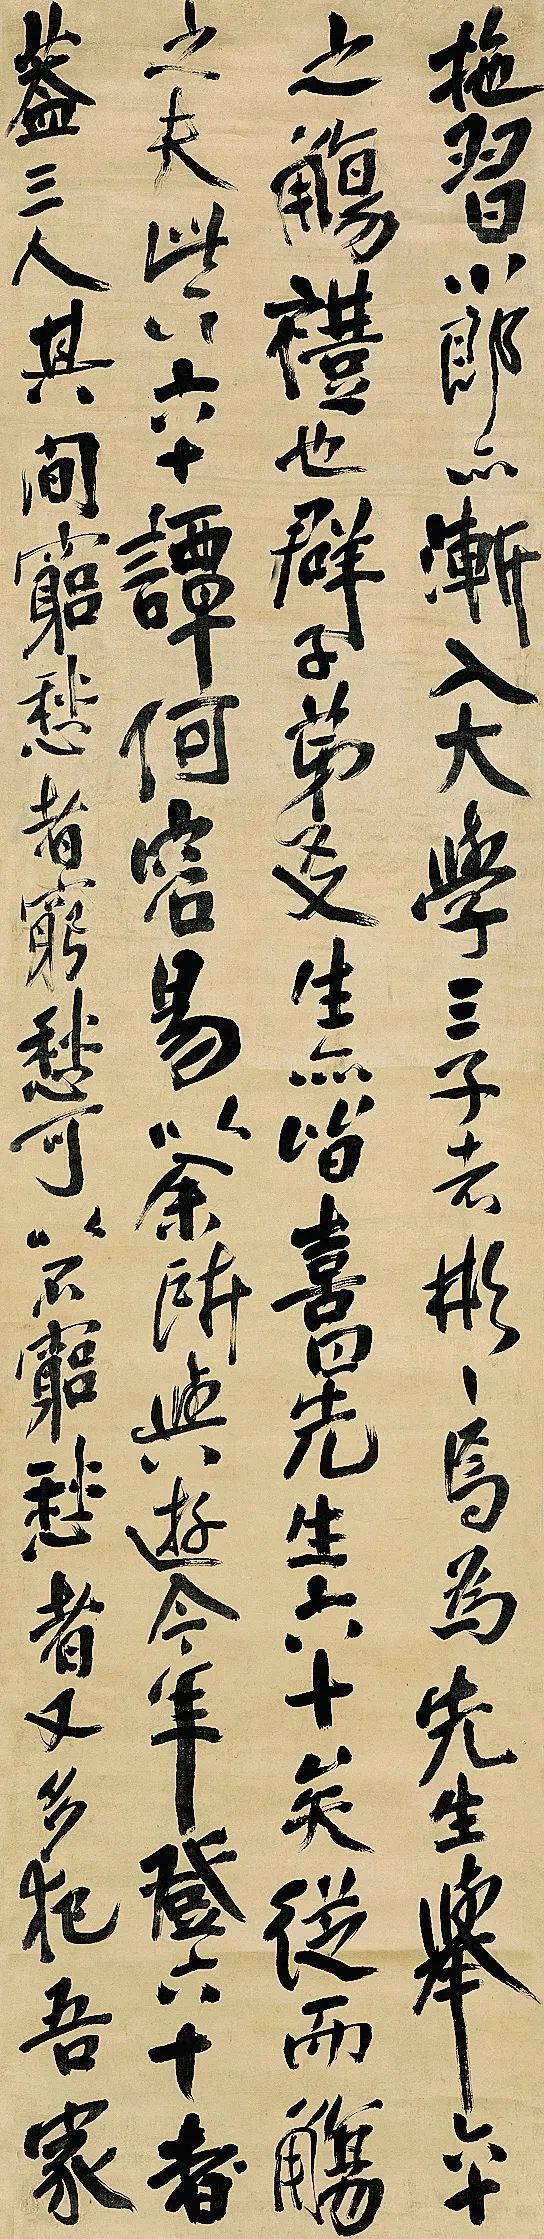 拖習小郎亦漸入大學三子者彬〻焉為先生舉六十
之觴禮也群子弟友生亦皆喜曰先生六十矣從而觴
之夫此六十譚何容易以余所與遊今年登六十者
蓋三人其間竆愁者窮愁可以不竆愁者又多犯吾家